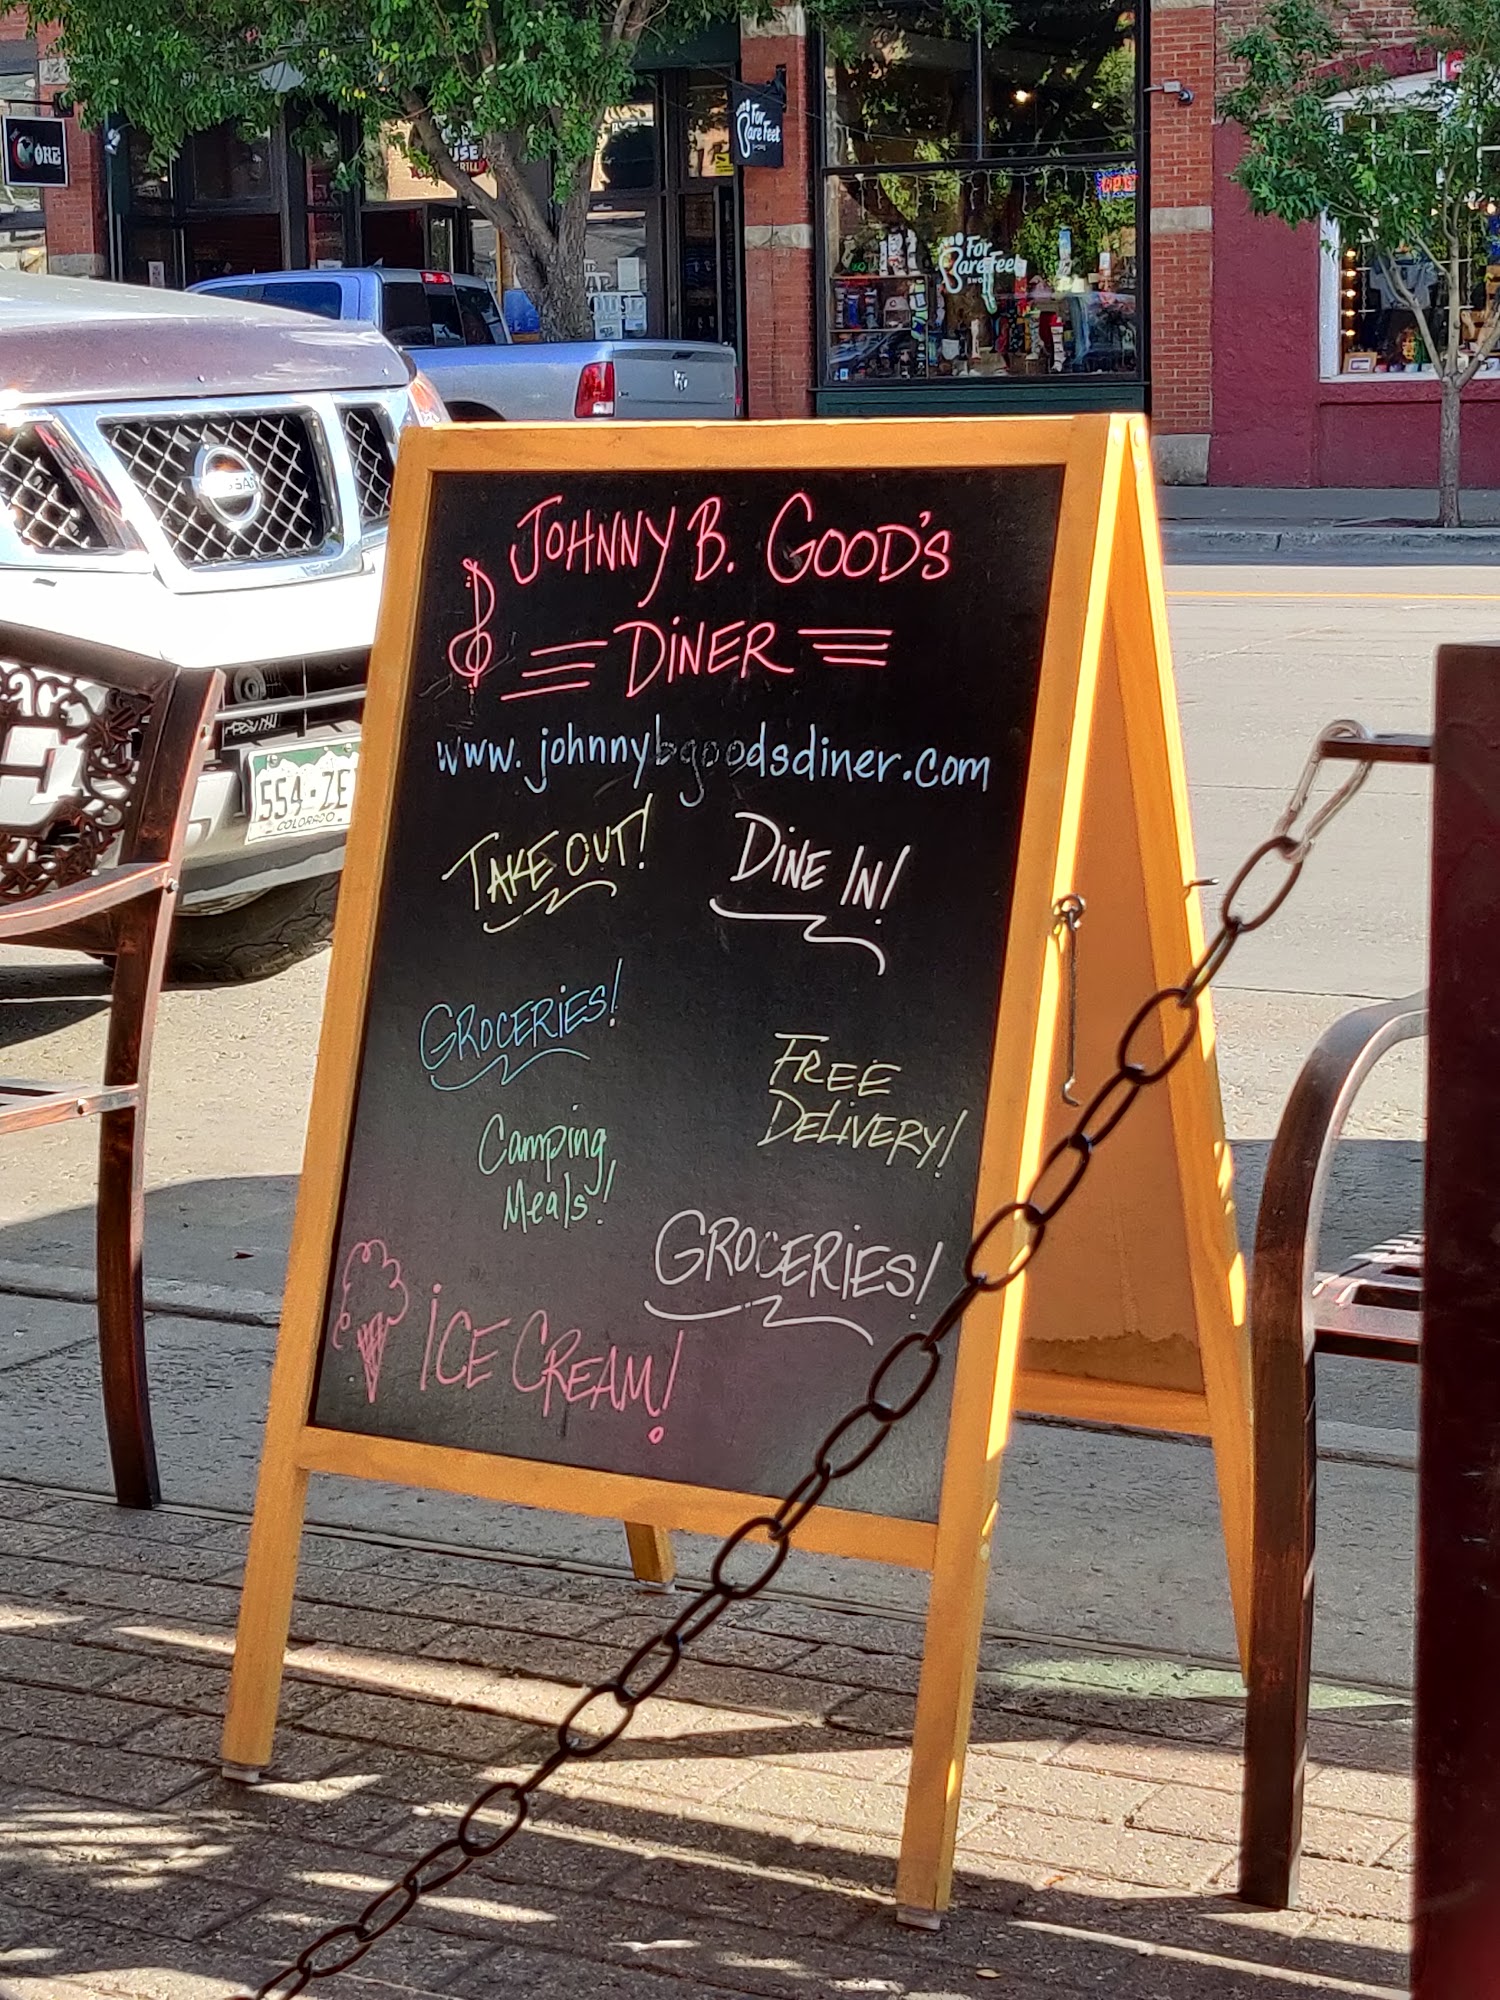 JOHNNY B. GOOD'S
DINER
www.johnnybgoodsdiner.com
TAKE OUT!
DINE IN!
GROCERIES!
FREE
DELIVERY!
Camping
Meals!
GROCERIES!
ICE CREAM!
For
Bare Feet
SHOES
For
Bare Feet
SHOES
OPEN
NISSAN
554·ZE
COLORADO
USE
GRILL